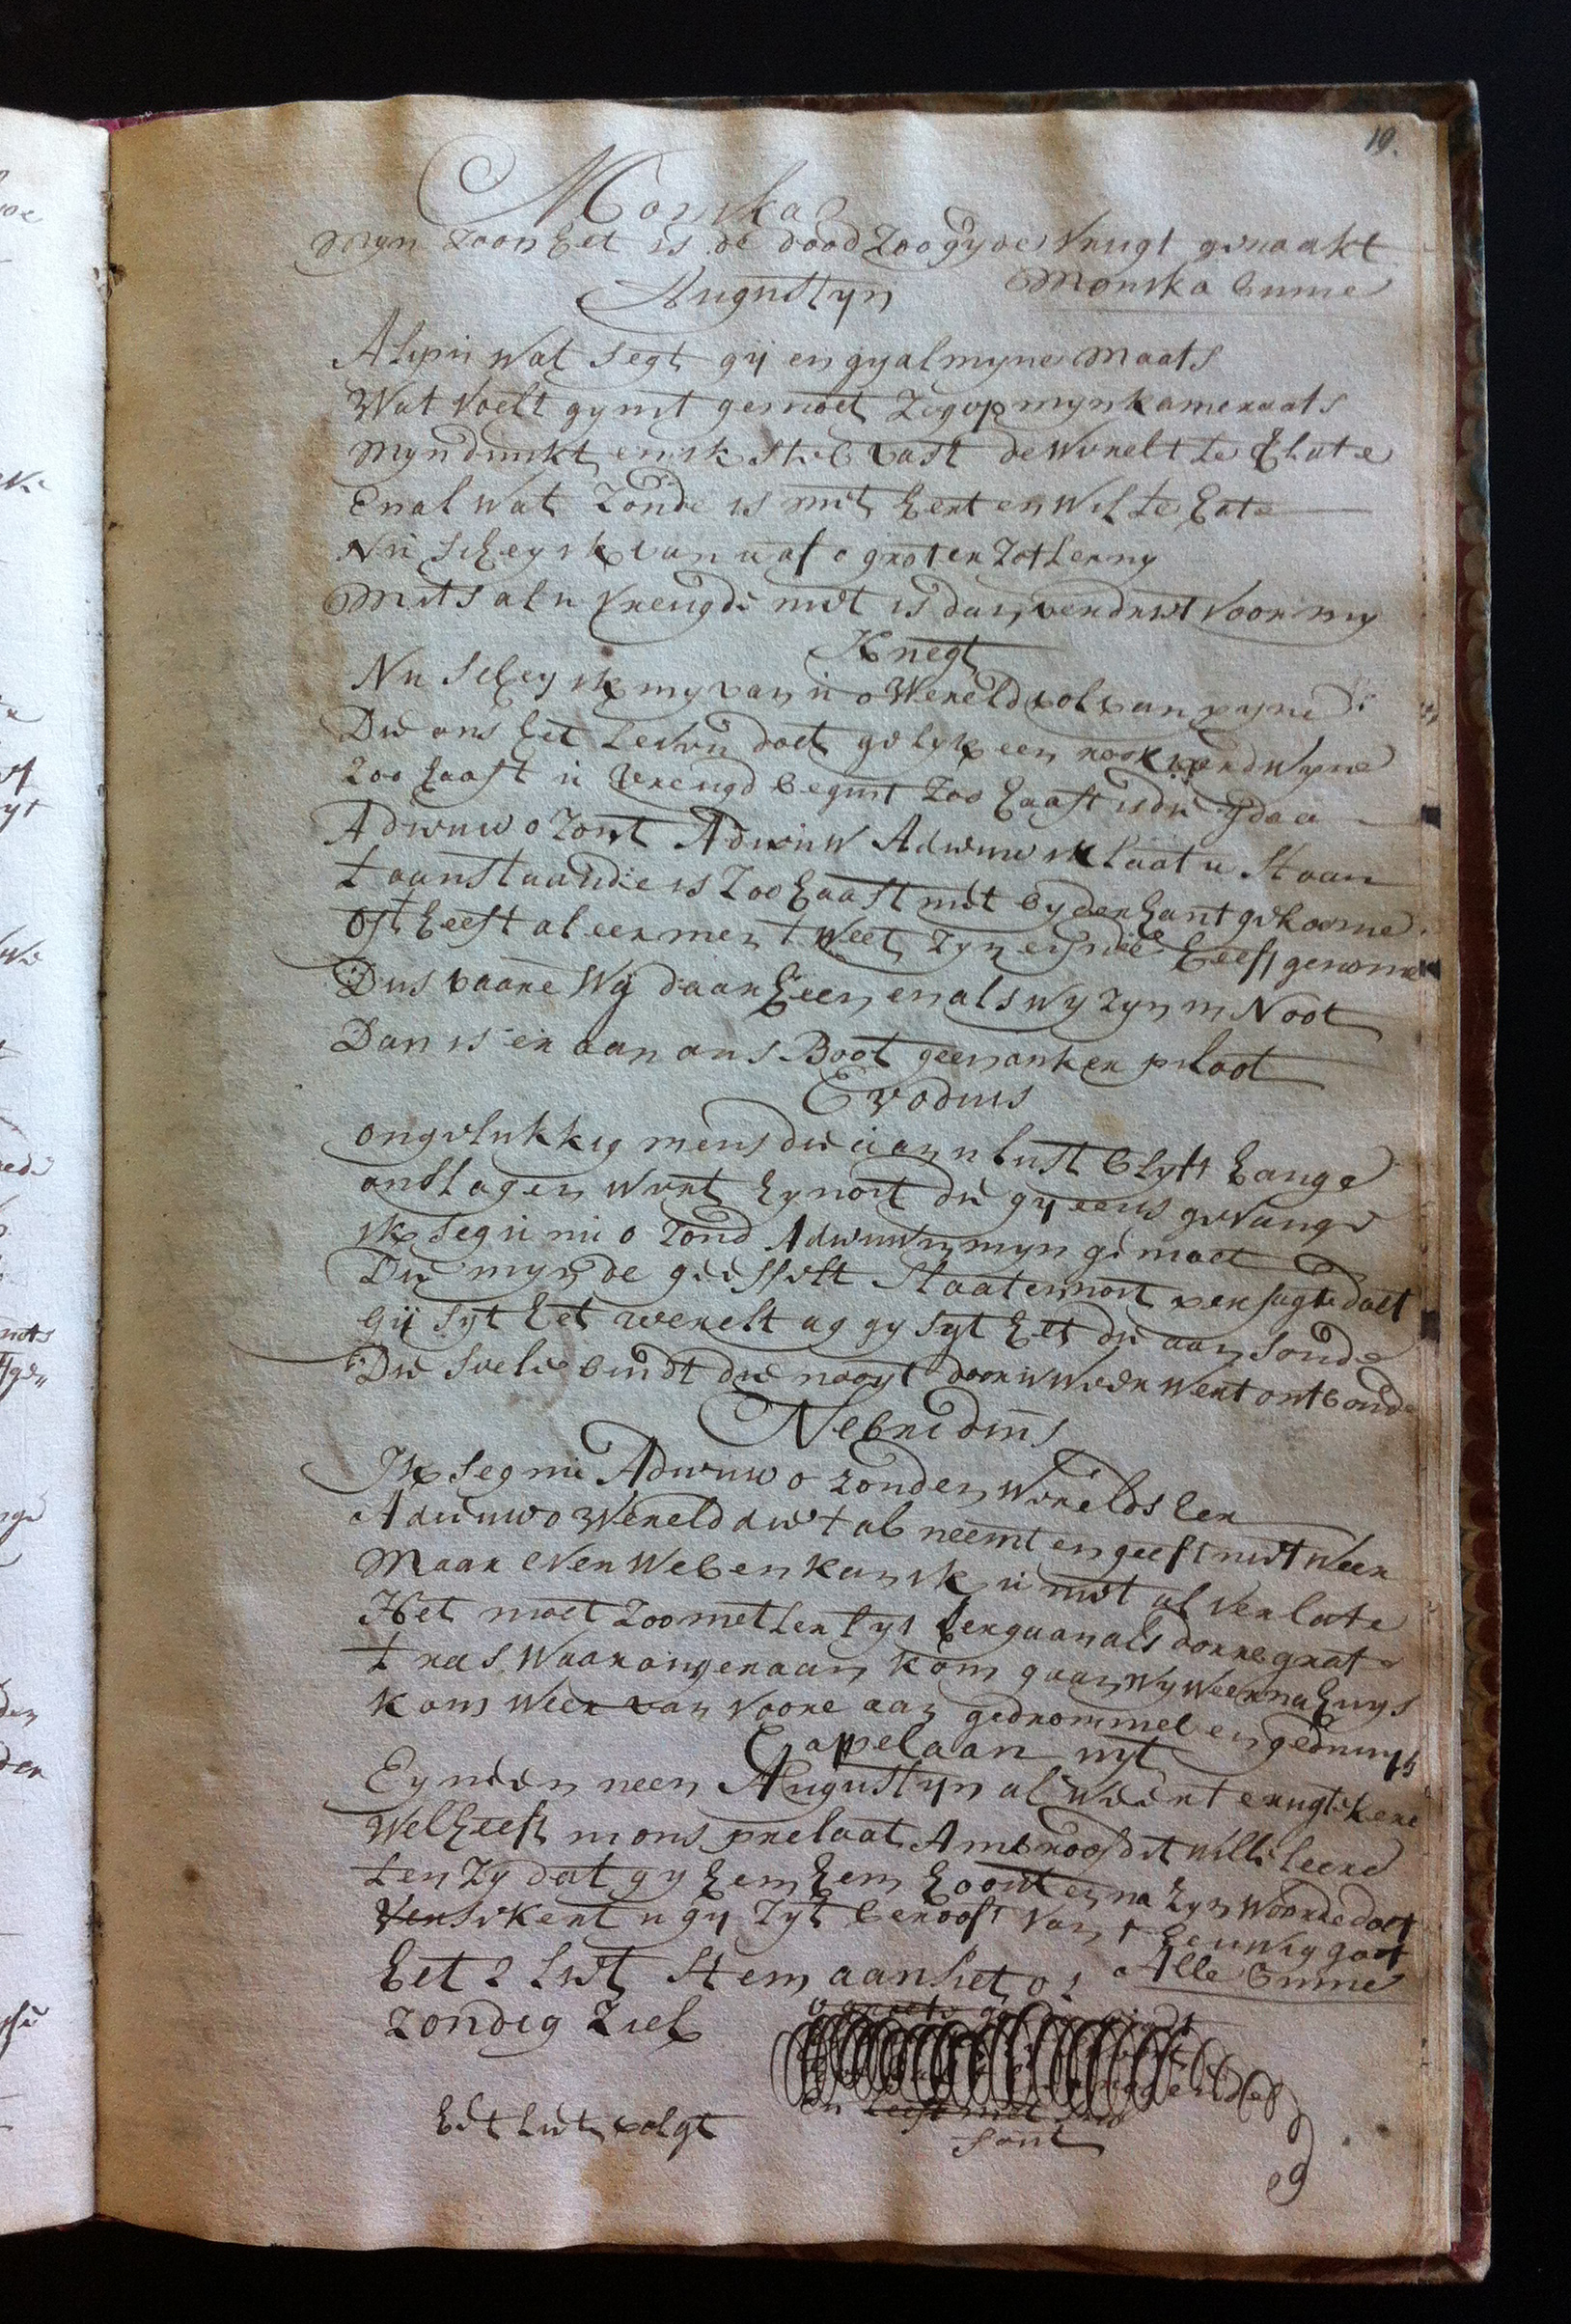 19.
Monika
myn zoon het is de dood zoo gy de vrugt genaakt
Augustyn Monika binne
Alipi wat segt gy en gy al myne maats
Wat voelt gy int gemoet zeg op myn kameraats
myn dunkt en ik stel vast de werelt te verlate
En al wat zonde is met hert en wil te hate
Nu schey ik van u af o groten zotterny
Mits al u vreugde niet is dan verdriet voor my
Knegt
Nu schey ik my van u o Wereld vol van pyne
Die ons het leven doet gelyk een rook verdwyne
zoo haast u vreugd begint zoo haast is die gdaa
Adieuw o zont Adieuw Adieuw ik laat u staan
t aanstaande is zoo haast niet by der hant gekome
oft heeft al eer men t weet zyn eynde heeft genome
Dus vaare wy daar heen en als wy zyn in Noot
Dan is er aan ons Boot geen anker piloot
Evodius
ongelukkig mens die aan u lust blyft hange
ontslagen wort hy noit die gy eens gevange
ik seg u nu o zond Adieuw myn gemoet
Die myn de geest staat en noit versugte doet
gy syt het werelt ag gy syt het die aan sonde
Die siele bindt die nooyt door u weer wert ontbonde
Nebridius
Ik seg nu Adieuw o zonden werelds eer
Adieuw o Wereld die t al neemt en geeft niet weer
Maar even wel en kan ik u niet al verlate
Het moet zoo metter tyt vergaan als dorre grate
t ras waar aan kom gaan wy weer na huys
kom weer van voore aan gedrommel en gedruys
Capelaan uyt
Ey neen neen Augustyn al weert erugtekere
Wel heeft in ons prelaat Ambroos dit wille leere
ten zy dat gy hem hem hoort en na zyn woorde doet
Versekert u gy zyt berooft van t eeuwig goet
het 2 liet stem aanhet o Alle binne
zondig ziel
en heeft met
sont
het liet volgt